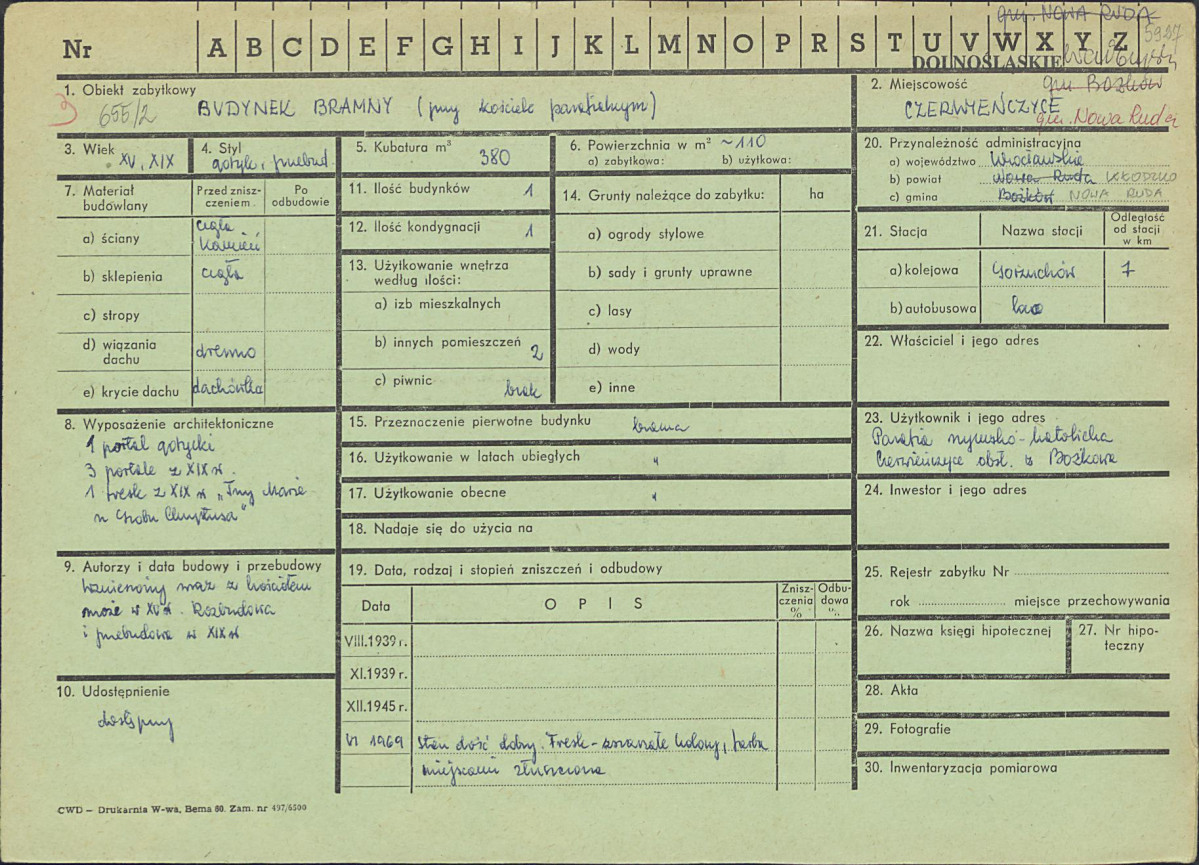 gm. NOWA RUDA
5927
Nr
A B C D E F G H I J K L M N O P R S T U V W X Y Z
DOLNOŚLĄSKIE
1. Obiekt zabytkowy
3
655/2
BUDYNEK BRAMNY (przy kościele parafialnym)
2. Miejscowość
gm. Bożków
CZERWIEŃCZYCE
gm. Nowa Ruda
3. Wiek
XV, XIX
4. Styl
gotyk, przebud.
5. Kubatura m³
380
6. Powierzchnia w m² ~110
a) zabytkowa: b) użytkowa:
7. Materiał budowlany
Przed zniszczeniem
Po odbudowie
a) ściany
cegła
kamień
b) sklepienia
cegła
c) stropy
d) wiązania dachu
drewno
e) krycie dachu
dachówka
8. Wyposażenie architektoniczne
1 portal gotycki
3 portale z XIX w.
1 fresk z XIX w „Trzy Marie
u Grobu Chrystusa"
9. Autorzy i data budowy i przebudowy
wzniesiony wraz z kościołem
może w XV w. Rozbudowa
i przebudowa w XIX w
10. Udostępnienie
dostępny
11. Ilość budynków
1
12. Ilość kondygnacji
1
13. Użytkowanie wnętrza
według ilości:
a) izb mieszkalnych
b) innych pomieszczeń
2
c) piwnic
brak
14. Grunty należące do zabytku:
ha
a) ogrody stylowe
b) sady i grunty uprawne
c) lasy
d) wody
e) inne
15. Przeznoczenie pierwotne budynku
brama
16. Użytkowanie w latach ubiegłych
"
17. Użytkowanie obecne
"
18. Nadaje się do użycia na
19. Data, rodzaj i stopień zniszczeń i odbudowy
Data
O P I S
Zniszczenia %
Odbudowa %
VIII.1939 r.
XI.1939 r.
XII.1945 r.
VI 1969
Stan dość dobry. Fresk - kolory, farba
miejscami złuszczona
20. Przynależność administracyjna
a) województwo Wrocławskie
b) powiat Nowa Ruda KŁODZKO
c) gmina Bożków NOWA RUDA
21. Stacja
Nazwa stacji
Odległość od stacji w km
a) kolejowa
Gorzuchów
7
b) autobusowa
22. Właściciel i jego adres
23. Użytkownik i jego adres
Parafia rzymsko-katolicka
Czerwieńczyce obsł. z Bożkowa
24. Inwestor i jego adres
25. Rejestr zabytku Nr
rok miejsce przechowywania
26. Nazwa księgi hipotecznej
27. Nr hipoteczny
28. Akta
29. Fotografie
30. Inwentaryzacja pomiarowa
CWD – Drukarnia W-wa, Bema 60. Zam. nr 497/6500